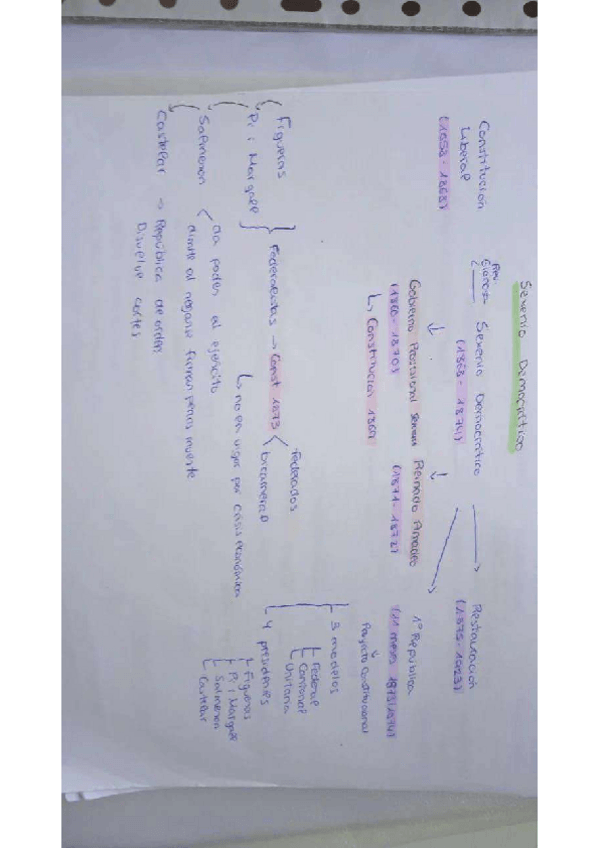 Sexenio Democrático
Constitución
Liberal
(1833-1868)
Rev.
Gloriosa
Sexenio Democrático
(1868-1874)
Restauración
Gobierno Provisional Serrano
↳ Constitución 1869
Reinado Amadeo
1ª República
(11 meses 1873/1874)
Proyecto Constitucional
3 modelos
Federal
Cantonal
Unitaria
4 presidentes
Figueras
Pi i Margall
Salmeron
Castelar
Figueras
Pi i Margall
Federalistas → Const 1873
Federados
bicameral
↳ no en vigor por crisis económica
Salmeron
da poder al ejército
dimite al negarse firmar penas muerte
Castelar → República de orden
Disuelve cortes